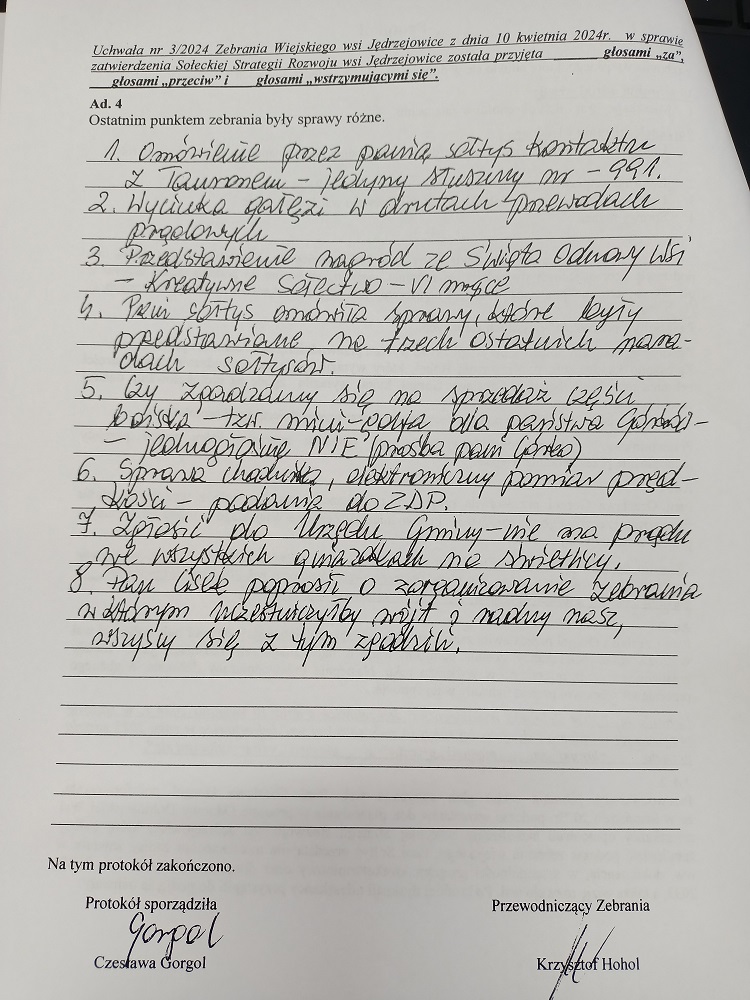 Uchwała nr 3/2024 Zebrania Wiejskiego wsi Jędrzejowice z dnia 10 kwietnia 2024r. w sprawie
zatwierdzenia Sołeckiej Strategii Rozwoju wsi Jędrzejowice została przyjęta ______ głosami „za”,
____głosami „przeciw” i ____głosami „wstrzymującymi się”.
Ad. 4
Ostatnim punktem zebrania były sprawy różne.
1. Omówienie przez panią sołtys kontaktu
z Tauronem – jedyny słuszny nr – 991.
2. Wycinka gałęzi w drutach przewodach
prądowych
3. Przedstawienie nagród ze Święta Odnowy Wsi
– Kreatywne Sołectwo – VI miejsce
4. Pani sołtys omówiła sprawy, które były
przedstawiane na trzech ostatnich nara-
dach sołtysów.
5. Czy zgadzamy się na sprzedaż części
boiska – tzw. mini-golfa dla państwa
– jednogłośnie NIE (prośba pani Górko)
6. Sprawa chodnika, elektroniczny pomiar pręd-
kości – podanie do ZDP.
7. Zgłosić do Urzędu Gminy – nie ma prądu
we wszystkich gniazdkach na świetlicy.
8. Pan Cisek poprosił o zorganizowanie zebrania
w którym uczestniczyłby wójt i radny nasz,
wszyscy się z tym zgodzili.
Na tym protokół zakończono.
Protokół sporządziła
Przewodniczący Zebrania
Gorgol
Czesława Gorgol
Krzysztof Hohol